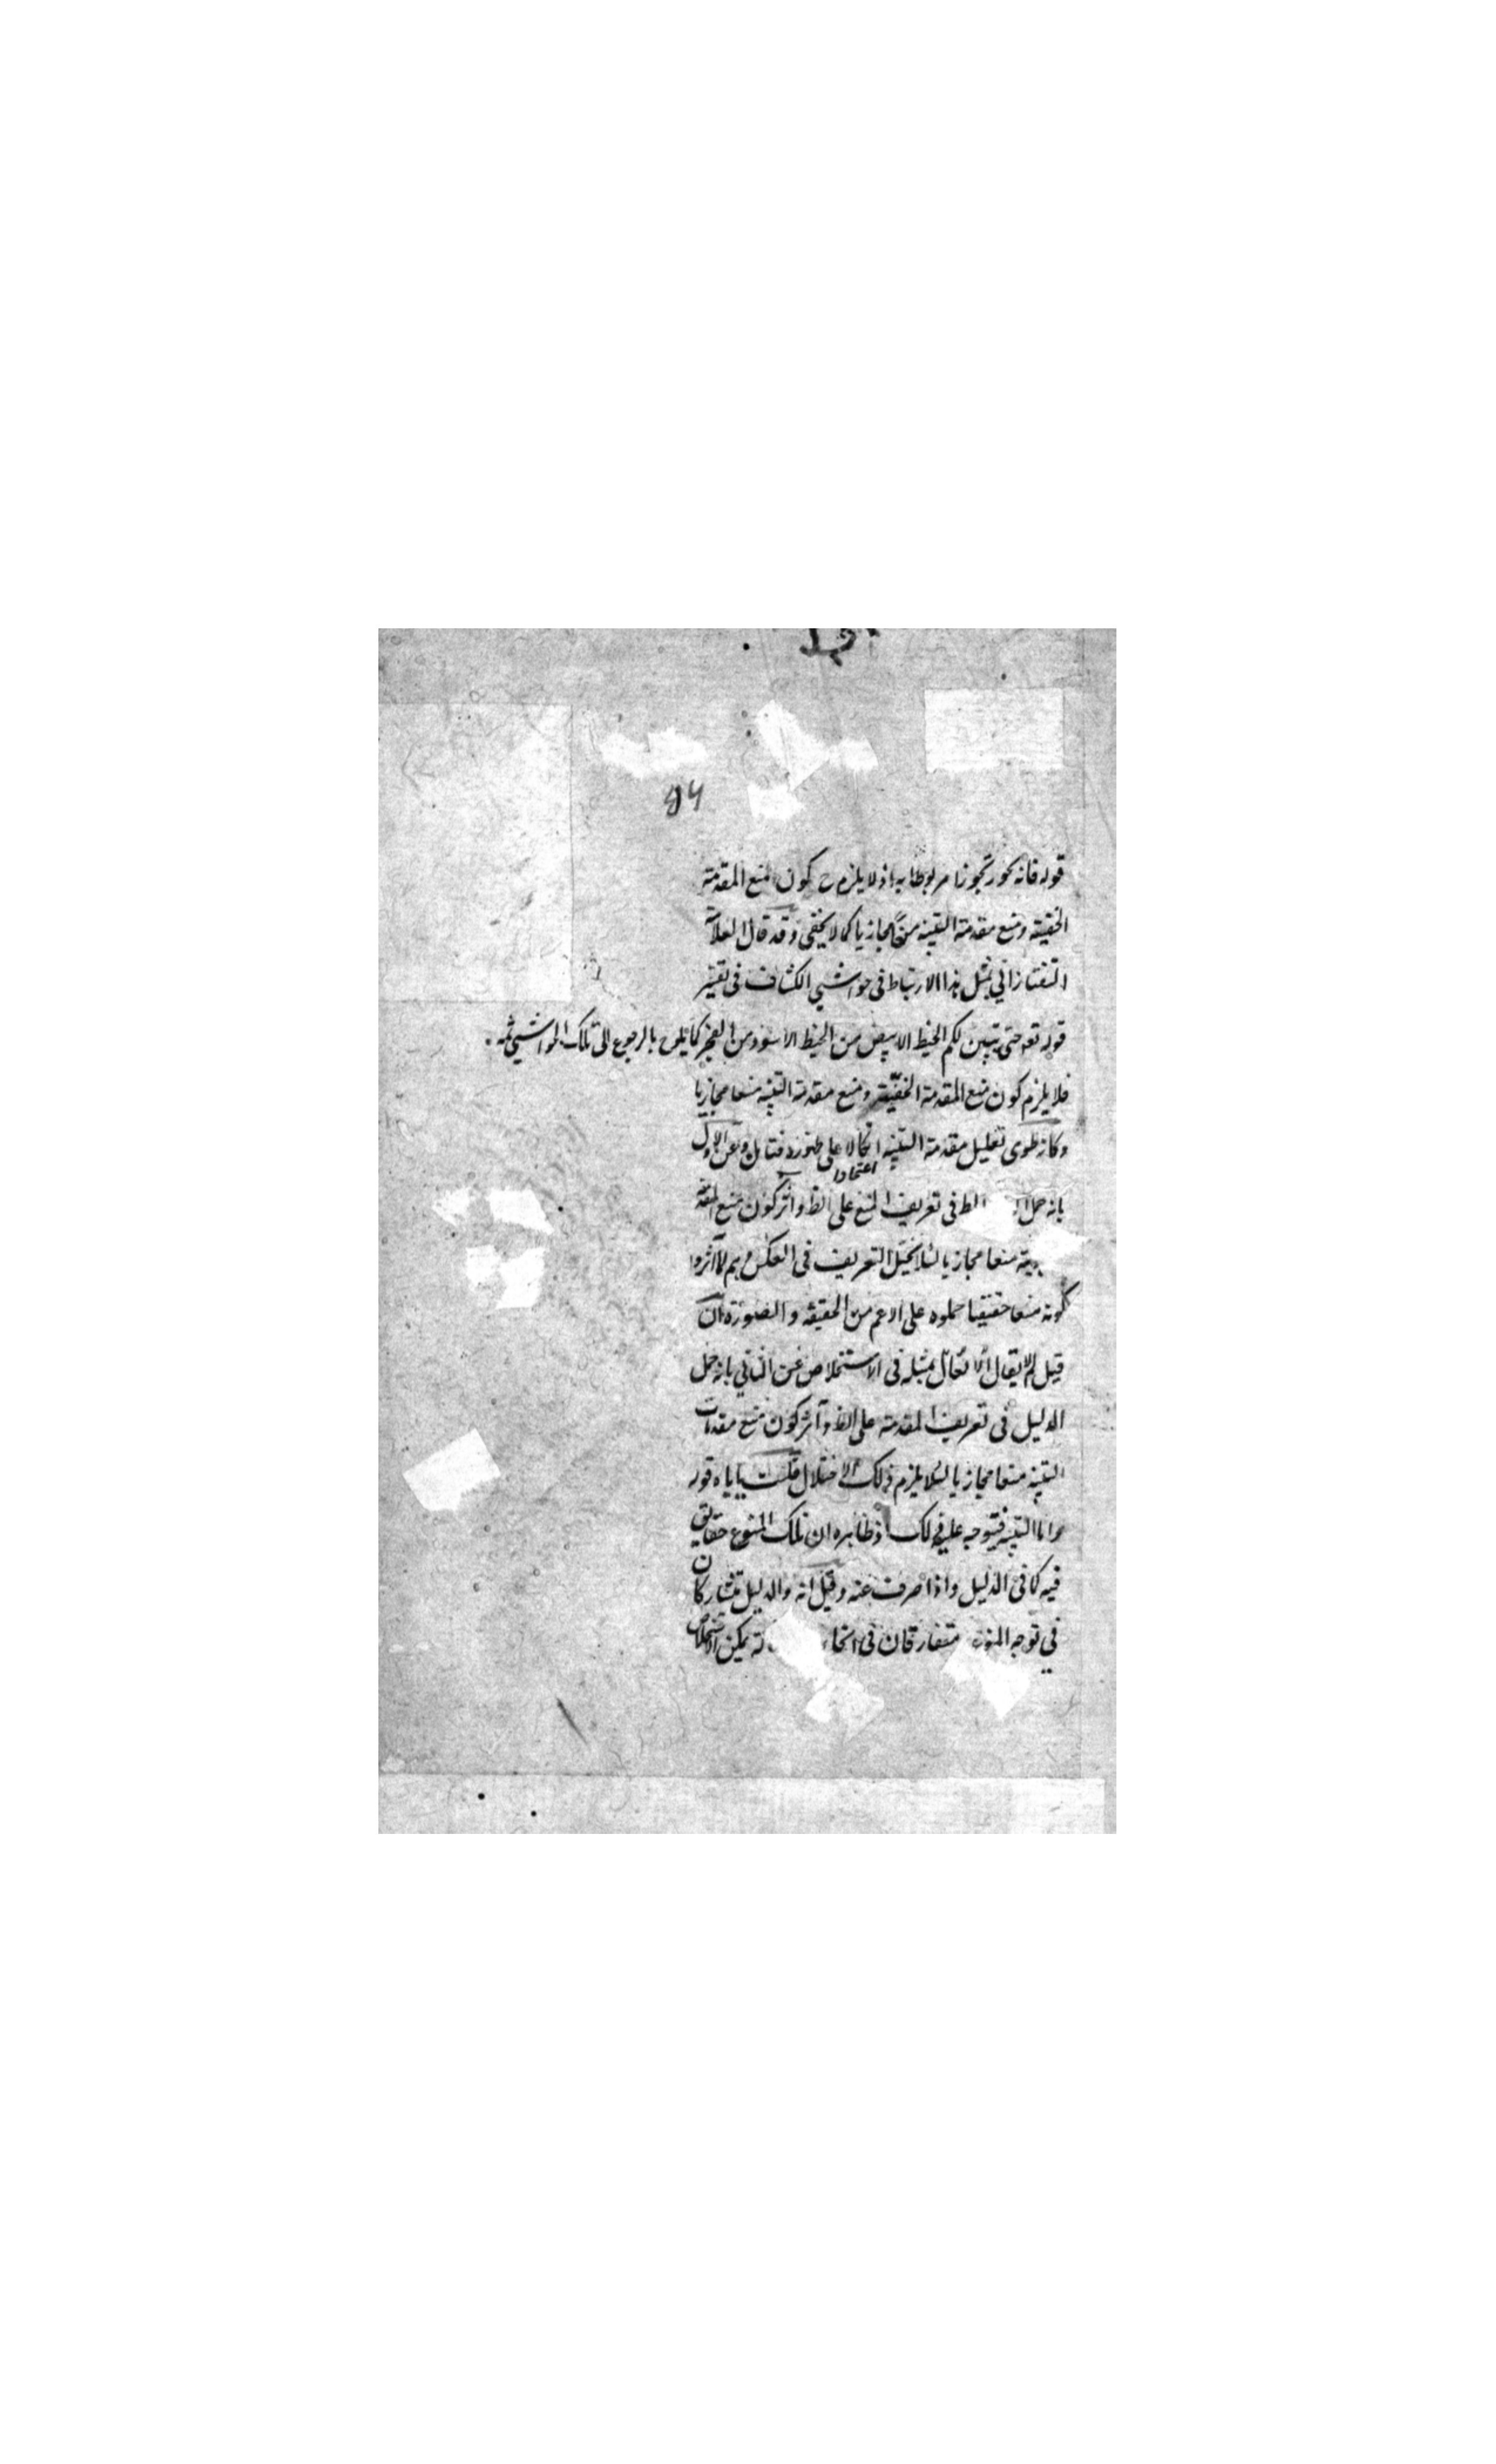 قوله فانه يجوز تجوزا مربوطا به اذ لا يلزم ح كون منع المقدمة
الخفية ومنع مقدمة التنبيه منعا مجازيا كما لا يخفى وقد قال العلامة
التفتازاني بمثل هذا الارتباط في حواشي الكشاف في تفسير
قوله تعه حتى يتبين لكم الخيط الابيض من الخيط الاسود من الفجر كما يلوح بالرجوع الى تلك الحواشي ثمه
فلا يلزم كون منع المقدمة الخفية ومنع مقدمة التنبيه منعا مجازيا
وكانه طوى تعليل مقدمة التنبيه اتكالا على ظهوره فتأمل وعن الاول
اعتمادا
بانه حمل في تعريف المنع على الظ واثر كون منع المقدمة
منعا مجازيا لئلا يختل التعريف في العكس وهم لما آثروا
كونه منعا حقيقيا حملوه على الاعم من الحقيقة والصورة ان
قيل لم لا يقال بمثله في الاستخلاص عن الثاني بانه حمل
الدليل في تعريف المقدمة على الظ وآثر كون منع مقدمات
التنبيه منعا مجازيا لئلا يلزم ذلك الاختلال قلت يأباه قوله
واما التنبيه فيتوجه عليه ذلك اذ ظاهره ان تلك المنوع حقايق
فيه كما في الدليل واذا صرف عنه وقيل انه والدليل متشاركان
في توجه متفارقان في يمكن الاستخلاص